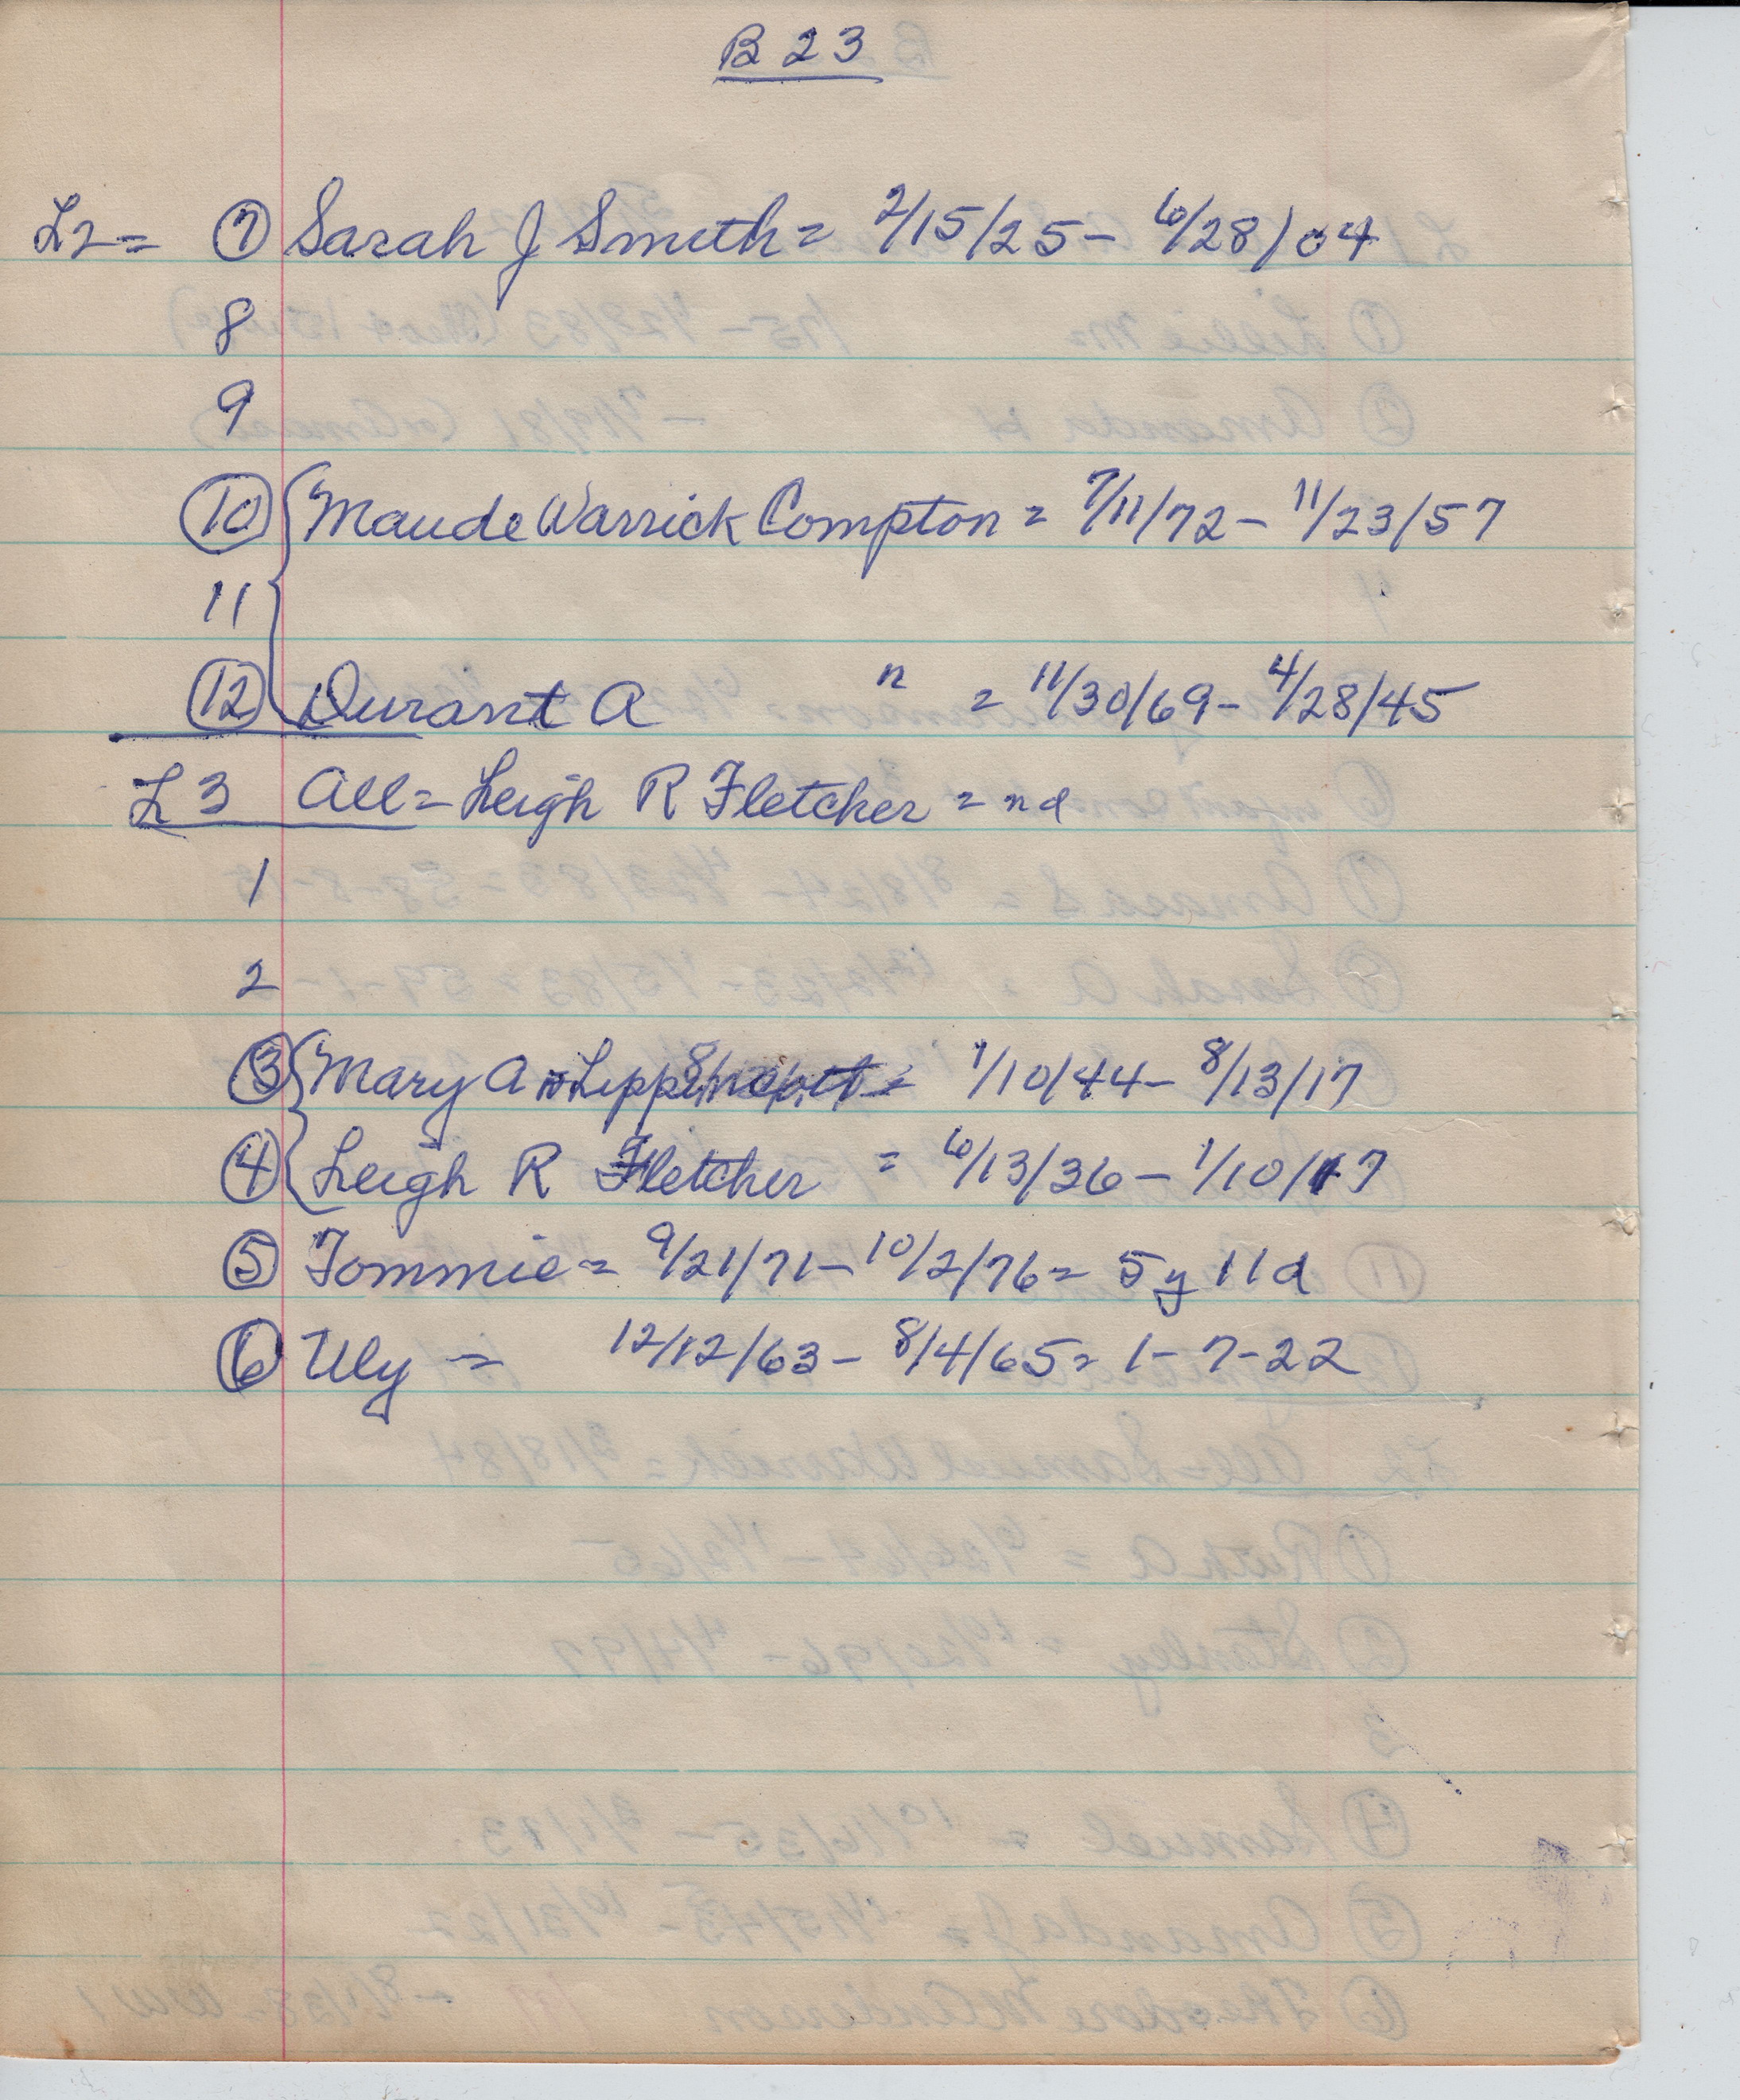 B 23
L2 = 7 Sarah J Smith = 2/15/25 - 6/28/04
8
9
10 Maude Warrick Compton = 7/11/72 - 11/23/57
11
12 Durant A " = 11/30/69 - 4/28/45
L3 All = Leigh R Fletcher = nd
1
2
3 Mary A = 1/10/44 - 8/13/17
4 Leigh R Fletcher = 6/13/36 - 1/10/17
5 Tommie = 9/21/71 - 10/2/76 = 5 y 11 d
6 Uly = 12/12/63 - 8/4/65 = 1-7-22